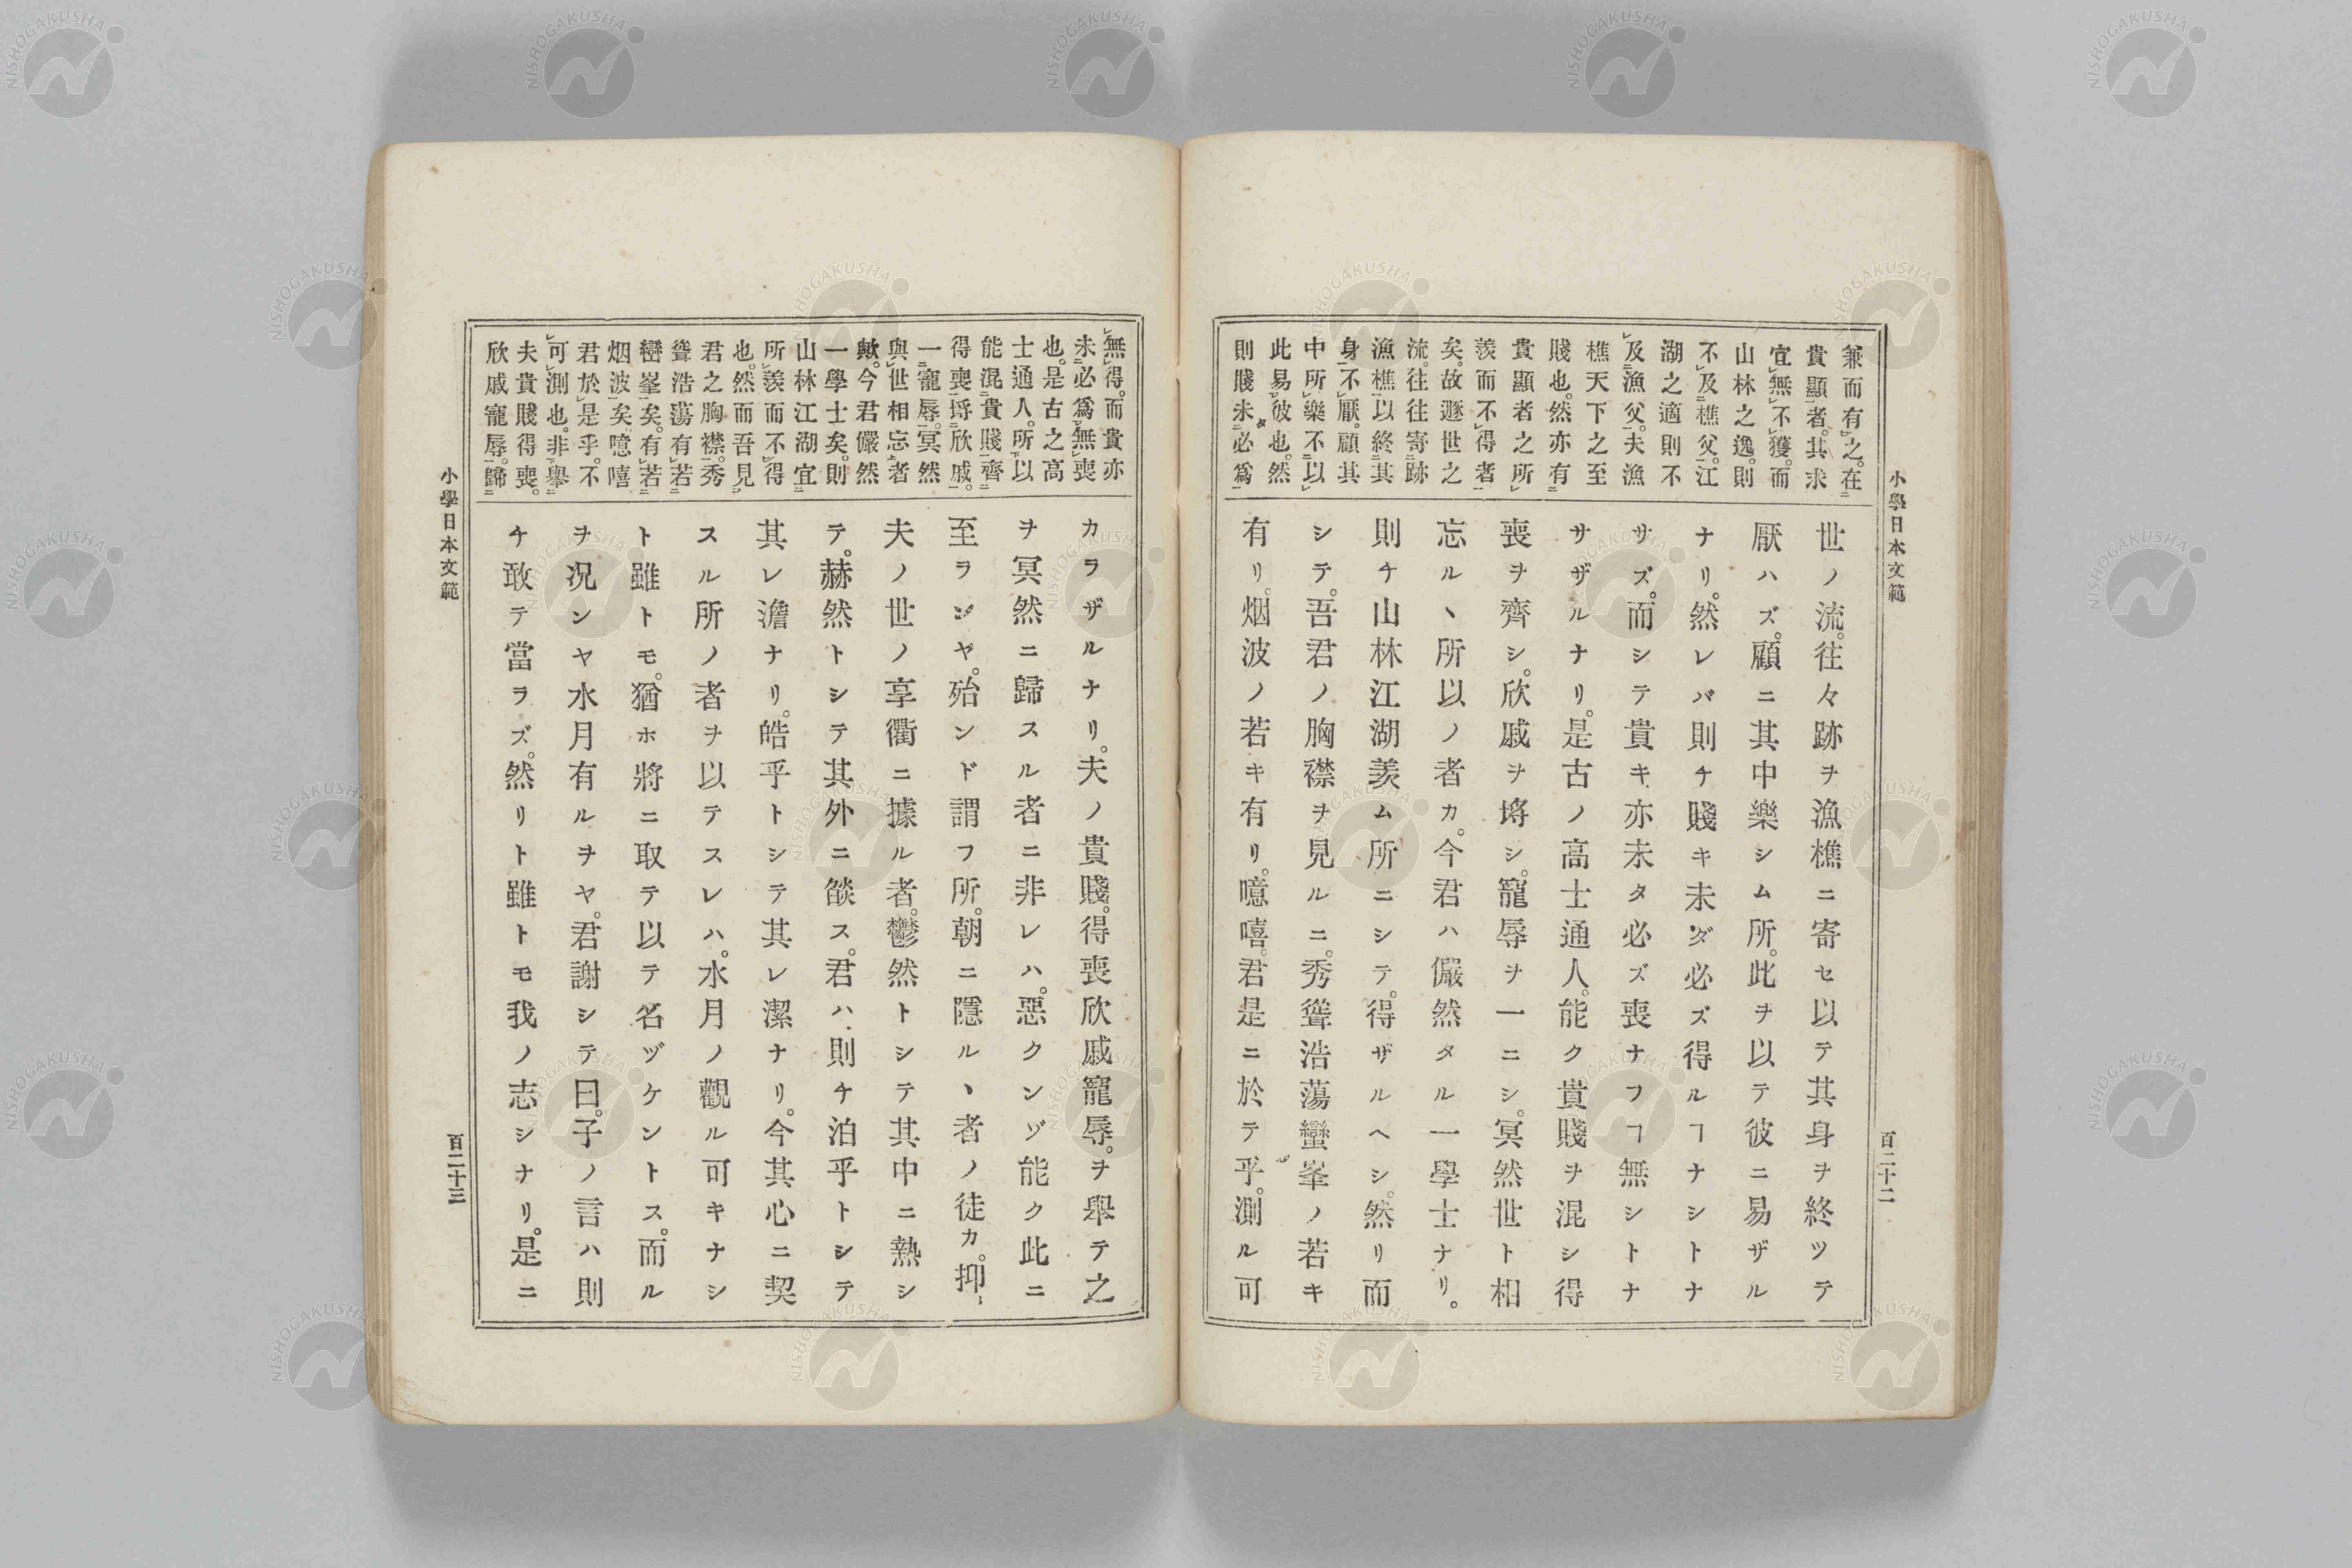 小學日本文範
百二十二
兼而有之。在
貴顯者。其求
宜無不獲。而
山林之逸。則
不及樵父。江
湖之適則不
及漁父。夫漁
樵天下之至
賤也。然亦有
貴顯者之所
羨而不得者
矣。故遯世之
流。往往寄跡
漁樵以終其
身不厭。顧其
中所樂不以
此易彼也。然
則賤未必爲
世ノ流。往々跡ヲ漁樵ニ寄セ以テ其身ヲ終ツテ
厭ハズ。顧ニ其中樂シム所。此ヲ以テ彼ニ易ザル
ナリ。然レバ則チ賤キ未ダ必ズ得ルヿナシトナ
サズ。而シテ貴キ亦未タ必ズ喪ナフヿ無シトナ
サザルナリ。是古ノ高士通人。能ク貴賤ヲ混シ得
喪ヲ齊シ。欣戚ヲ埓シ。寵辱ヲ一ニシ。冥然世ト相
忘ルヽ所以ノ者カ。今君ハ儼然タル一學士ナリ。
則チ山林江湖羨ム所ニシテ。得ザルヘシ。然リ而
シテ。吾君ノ胸襟ヲ見ルニ。秀聳浩蕩巒峯ノ若キ
有リ。烟波ノ若キ有リ。噫嘻。君是ニ於テ乎。測ル可
無得。而貴亦
未必爲無喪
也。是古之高
士通人。所以
能混貴賤齊
得喪埓欣戚。
一寵辱。冥然
與世相忘者
歟。今君儼然
一學士矣。則
山林江湖宜
所羨而不得
也。然而吾見
君之胸襟。秀
聳浩蕩有若
巒峯矣。有若
烟波矣。噫嘻
君於是乎。不
可測也。非擧
夫貴賤得喪。
欣戚寵辱。歸
カラザルナリ。夫ノ貴賤。得喪欣戚寵辱。ヲ擧テ之
ヲ冥然ニ歸スル者ニ非レハ。惡クンゾ能ク此ニ
至ランヤ。殆ンド謂フ所。朝ニ隱ルヽ者ノ徒カ。抑〻
夫ノ世ノ享衢ニ據ル者。鬱然トシテ其中ニ熱シ
テ。赫然トシテ其外ニ燄ス。君ハ則チ泊乎トシテ
其レ澹ナリ。皓乎トシテ其レ潔ナリ。今其心ニ契
スル所ノ者ヲ以テスレハ。水月ノ觀ル可キナシ
ト雖トモ。猶ホ將ニ取テ以テ名ヅケントス。而ル
ヲ況ンヤ水月有ルヲヤ。君謝シテ曰。子ノ言ハ則
チ敢テ當ラズ。然リト雖トモ我ノ志シナリ。是ニ
小學日本文範
百二十三